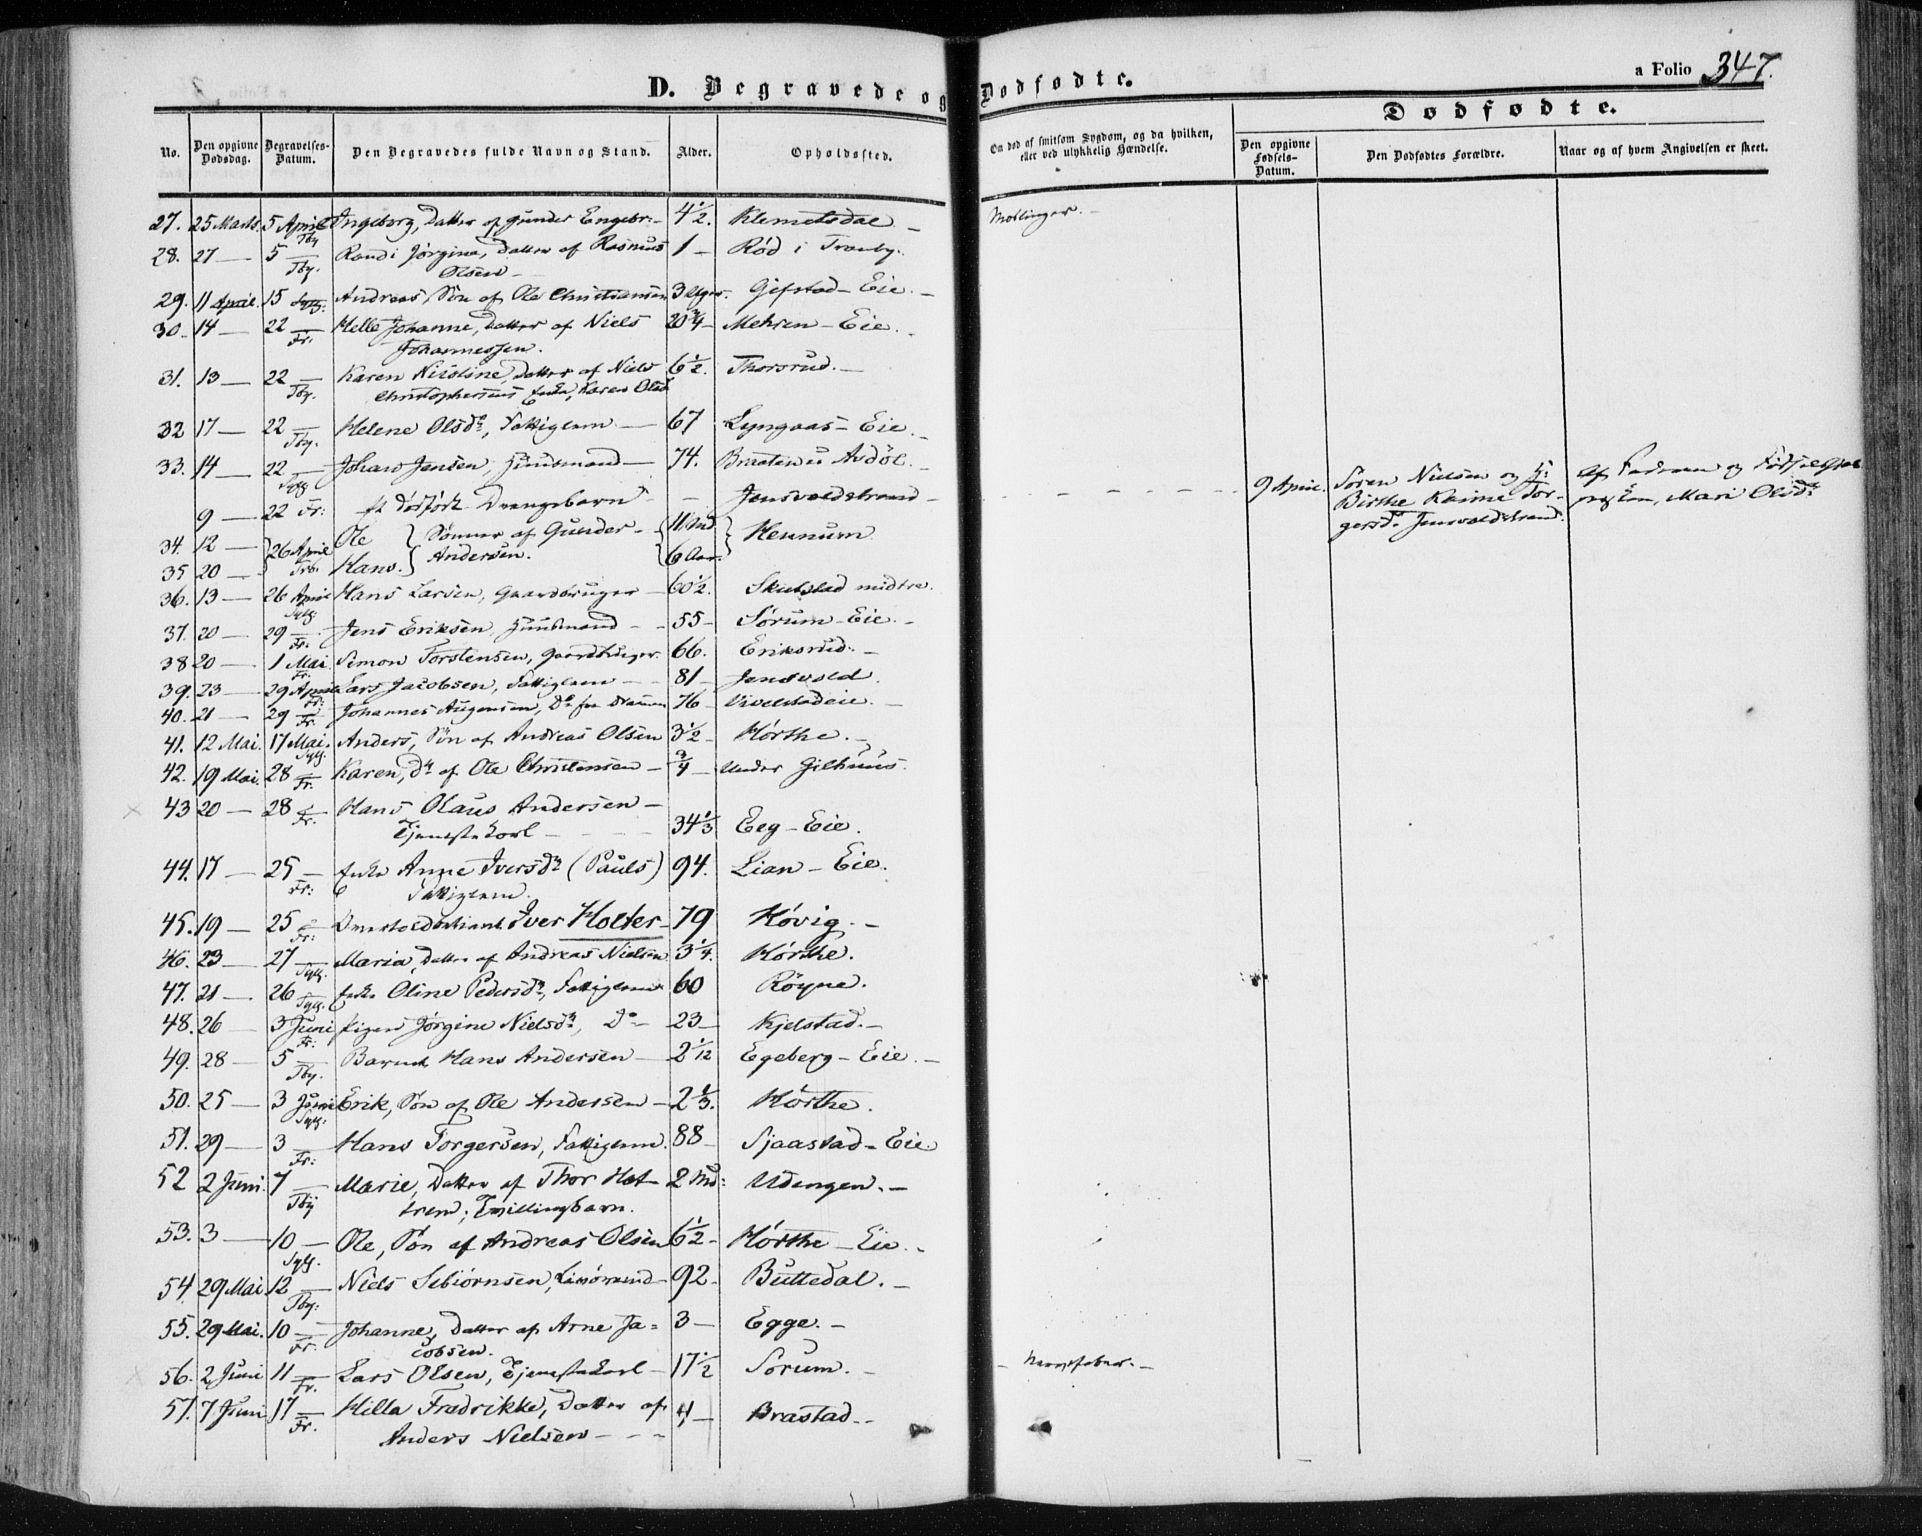 D. Begravede og Dødfødte.
a Folio 347.
Dødfødte.
No.
Den opgivne Dødsdag.
Begravelses-Datum.
Den Begravedes fulde Navn og Stand.
Alder.
Opholdssted.
Om død af smitsom Sygdom, og da hvilken, eller ved ulykkelig Hændelse.
Den opgivne Fødsels-Datum.
Den Dødfødtes Forældre.
Naar og af hvem Angivelsen er skeet.
27. 25 Marts. 5 April Tby Ingeborg, Datter af Gunder Engebr:- 4 1/2 Klemetsdal - Meslinger. -
28. 27 — 5 — Tby. Randi Jørgine, Datter af Rasmus 1 - Rød i Tranby.
Olsen -
29. 11 April. 15 Sylg. Andreas, Søn af Ole Christiansen 3 Uger. Gifstad-Eie. -
30. 14 — 22 — Fr. Helle Johanne, Datter af Niels 20 3/4 - Mehren-Eie.
Johannessen.
31. 13 — 22 — Tby. Karen Nicoline, Datter af Niels 6 1/2. Thorsrud. -
Christophersens Enke, Karen Olsd.
32 17 — 22 — Tby. Helene Olsdr, Fattiglem — 67 Lyngaas-Eie. -
33. 14 — 22 — Sylg Johan Jensen, Huusmand — 74. Braaten u Avdøl. -
9 — 22 Fr: et dødfødt Drengebarn - - Jensvoldstrand - 9 April. Søren Nielsen og H: Af Faderen og Fødselshjæl-
Birthe Karine Tor-
gersdr Jensvoldstrand.
Mari Olsdr
34. 12 — 26 April Frb. Ole } Sønner af Gunder - { 11 Md } Hennum
35 20 — Hans. } Andersen. { 6 Aar.
36. 13 — 26 April Sylg. Hans Larsen, Gaardbruger - 60 1/2. Skulstad midtre.
37. 20 — 29 — Fr. Jens Eriksen, Huusmand - - 55 - Sørum-Eie. -
38 20 — 1 Mai Fr. Simon Torstensen, Gaardbruger. 66. Eriksrud. -
39. 23 — 29 April Fr: Lars Jacobsen, Fattiglem - - 81 - Jensvold.
40. 21 — 29 — Fr. Johannes Augensen, Do fra Drammen 76 - Vivelstadeie. -
41. 12 Mai. 17 Mai. Sylg. Anders, Søn af Andreas Olsen 3 1/2 - Hørthe. -
42. 19 Mai. 28 — Fr. Karen, Dr af Ole Christensen - 3/4 - Under Gilhuus.
43 20 — 28 — Fr. Hans Olaus Andersen -
Tjenestekarl - - - - 34 1/3 Eeg-Eie.
44. 17 — 25 — Fr: Enke Anne Iversdr (Pauls) 94. Lian-Eie.
Fattiglem.
45. 19 — 25 — Fr: Overtoldbetjent Iver Holter - 79 Høvig. -
46. 23 — 27 — Sylg. Maria, Datter af Andreas Nielsen 3 1/4. Hørthe.
47. 21 — 26 Sylg. Enke Oline Pedersdr, Fattiglem 60 Røyne.
48. 26 — 3 Juni Fr: Pigen Jørgine Nielsdr, Do - 23 - Kjelstad. -
49. 28 — 5 — Tby. Barnet Hans Andersen - 2 1/12 Egeberg-Eie. -
50. 25 — 3 Juni Sylg. Erik, Søn af Ole Andersen - 2 1/3. Hørthe.
51. 29 — 3 — Fr: Hans Torgersen, Fattiglem. 88 - Sjaastad-Eie.
52 2 Juni. 7 — Tby Marie, Datter af Thor Hot- 2 Md: Udengen. -
trem; Tvillingbarn.
53. 3 — 10 — Sylg. Ole, Søn af Andreas Olsen 6 1/2 - Hørthe-Eie. -
54. 29 Mai 12 — Tby: Niels Sebiørnsen, 92 - Buttedal. -
55. 29 Mai. 10 — Fr. Johanne, Datter af Arne Ja= 3 - Egge. -
cobsen.
56. 2 Juni 11 — Fr. Lars Olsen, Tjenestekarl - 17 1/2 Sørum. - - Nervefeber. -
57. 7 Juni 17 — Fr. Hilla Fredrikke, Datter af 4 - Brastad. -
Anders Nielsen - - -